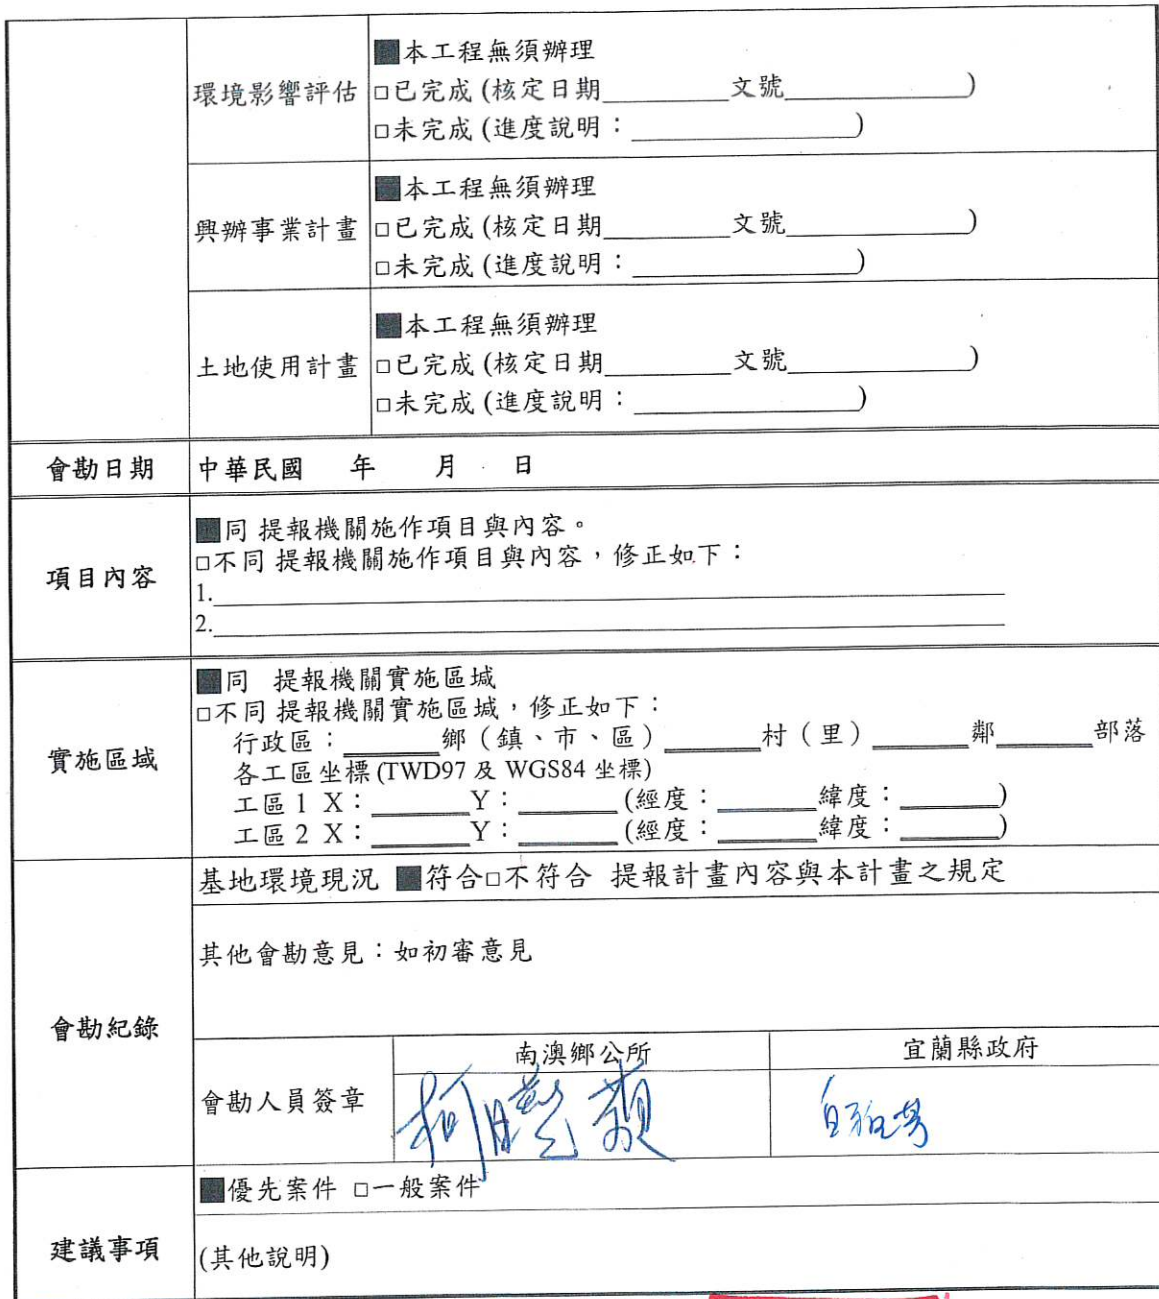 環境影響評估
■本工程無須辦理
□已完成(核定日期________文號____________)
□未完成(進度說明：______________)
興辦事業計畫
■本工程無須辦理
□已完成(核定日期________文號____________)
□未完成(進度說明：______________)
土地使用計畫
■本工程無須辦理
□已完成(核定日期________文號____________)
□未完成(進度說明：______________)
會勘日期
中華民國　年　月　日
項目內容
■同 提報機關施作項目與內容。
□不同 提報機關施作項目與內容，修正如下：
1.__________________________________________________
2.__________________________________________________
實施區域
■同　提報機關實施區域
□不同 提報機關實施區域，修正如下：
行政區：______鄉（鎮、市、區）______村（里）______鄰______部落
各工區坐標(TWD97 及 WGS84 坐標)
工區 1 X：______Y：______(經度：______緯度：______)
工區 2 X：______Y：______(經度：______緯度：______)
會勘紀錄
基地環境現況 ■符合□不符合 提報計畫內容與本計畫之規定
其他會勘意見：如初審意見
會勘人員簽章
南澳鄉公所
宜蘭縣政府
建議事項
■優先案件 □一般案件
(其他說明)